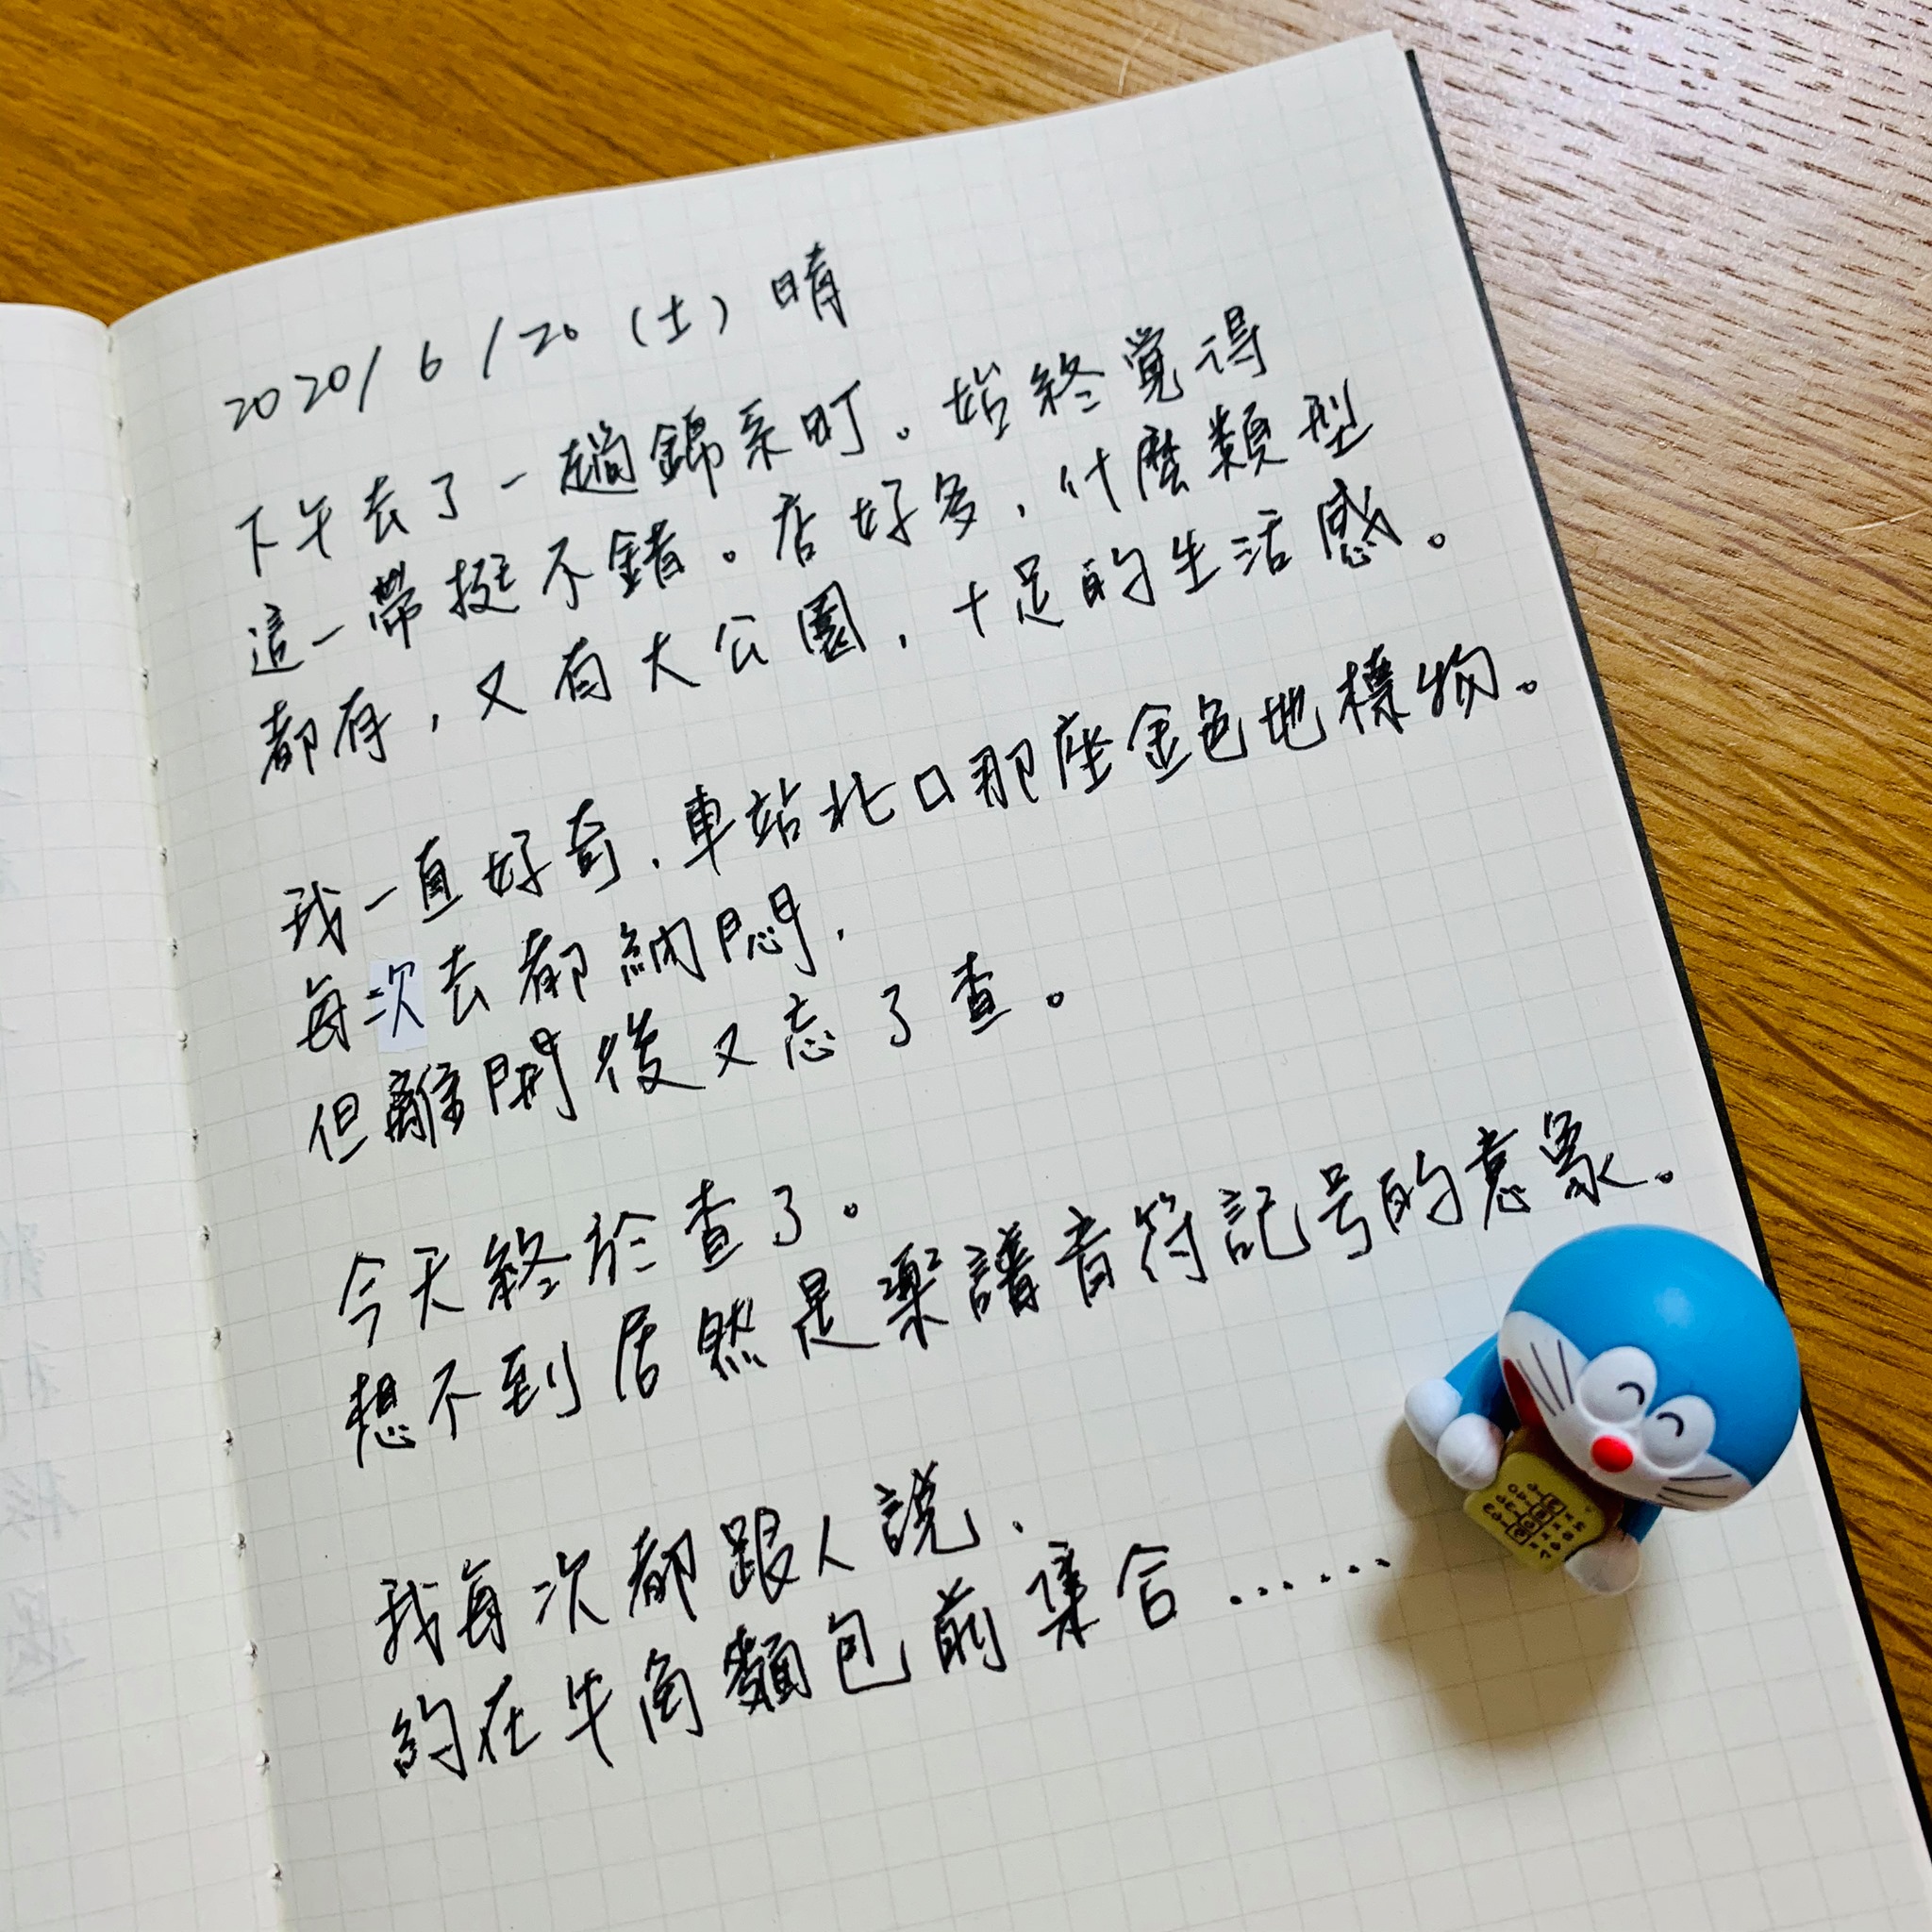 2020/6/20(土)晴
下午去了一趟錦糸町。始終覺得
這一帶挺不錯。店好多,什麼類型
都有,又有大公園,十足的生活感。
我一直好奇,車站北口那座金色地標物。
每次去都納悶,
但離開後又忘了查。
今天終於查了。
想不到居然是樂譜音符記号的意象。
我每次都跟人說,
約在牛角麵包前集合……